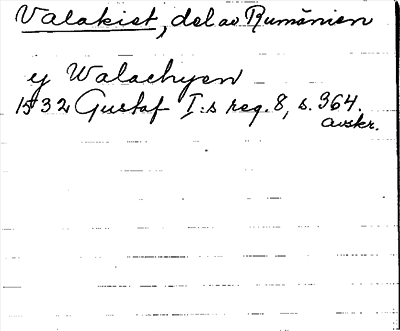 Valakiet, del av Rumänien
y Walachyen
1532 Gustaf I:s reg. 8, s. 364.
avskr.